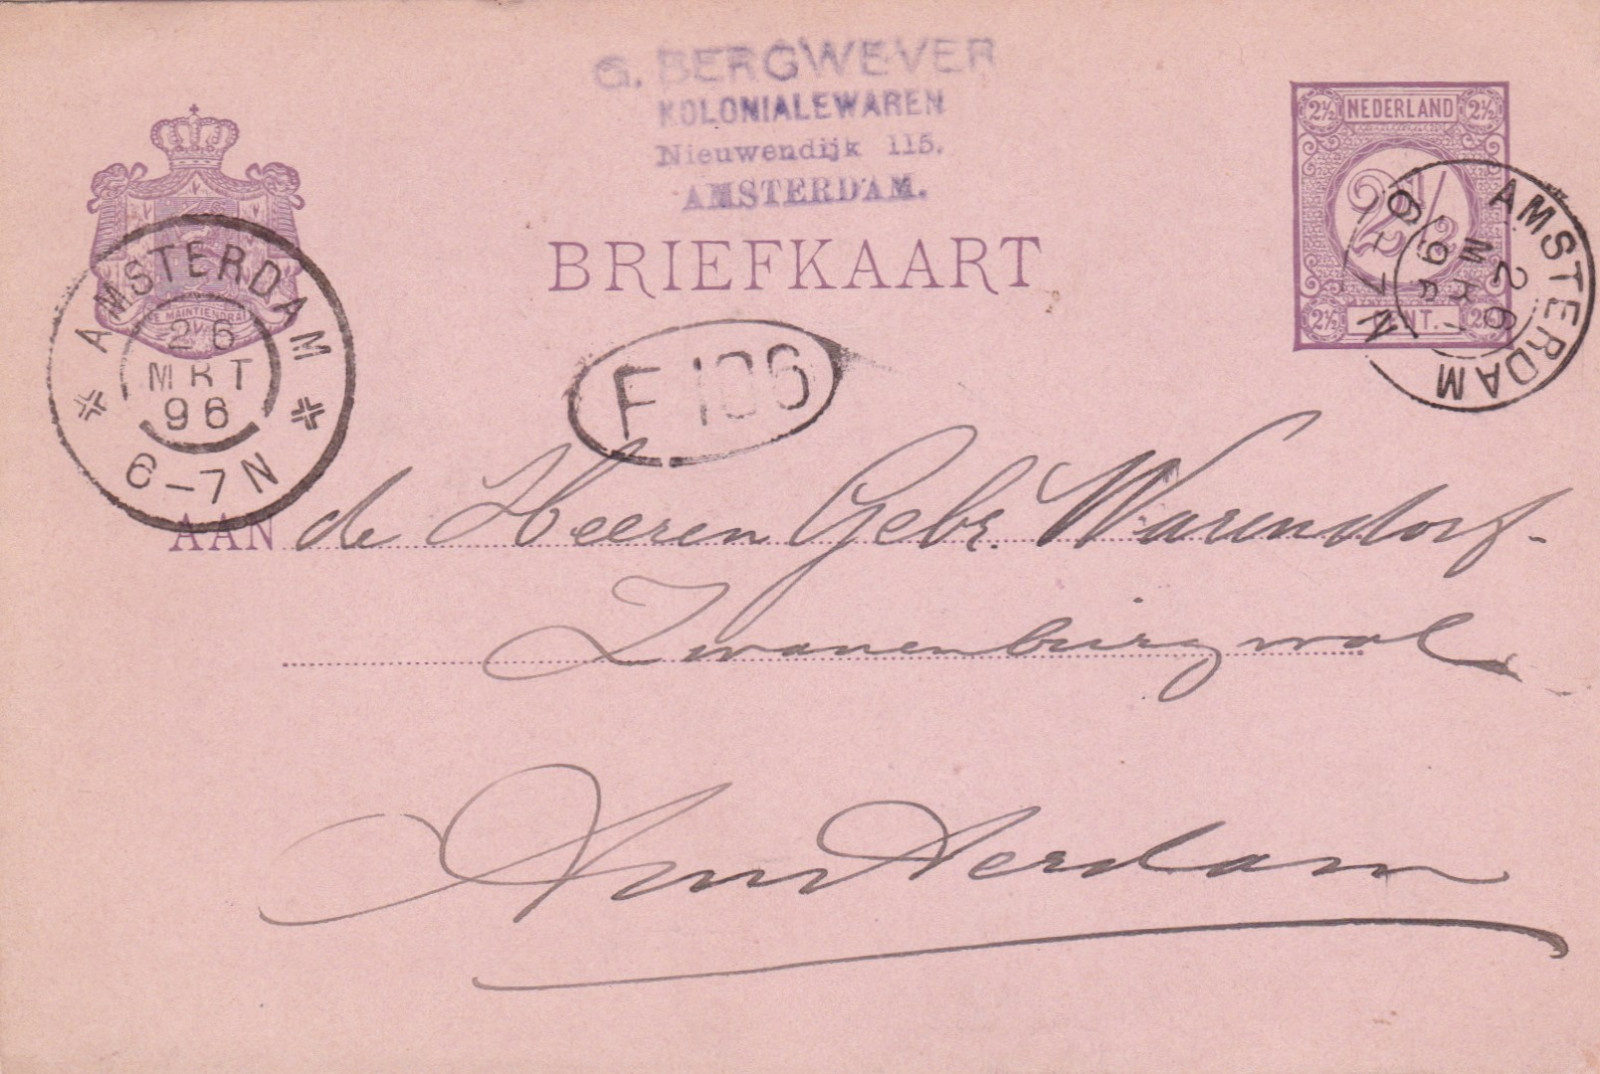 G. BERGWEVER
KOLONIALEWAREN
Nieuwendijk 115.
AMSTERDAM.
2½ NEDERLAND 2½
2½
2½ CENT. 2½
AMSTERDAM
26 MRT 96
6-7N
BRIEFKAART
JE MAINTIENDRAI
AMSTERDAM
26
MRT
96
6-7N
F 106
AAN de Heeren Gebr. Warendorf.
Zwanenburgwal
Amsterdam